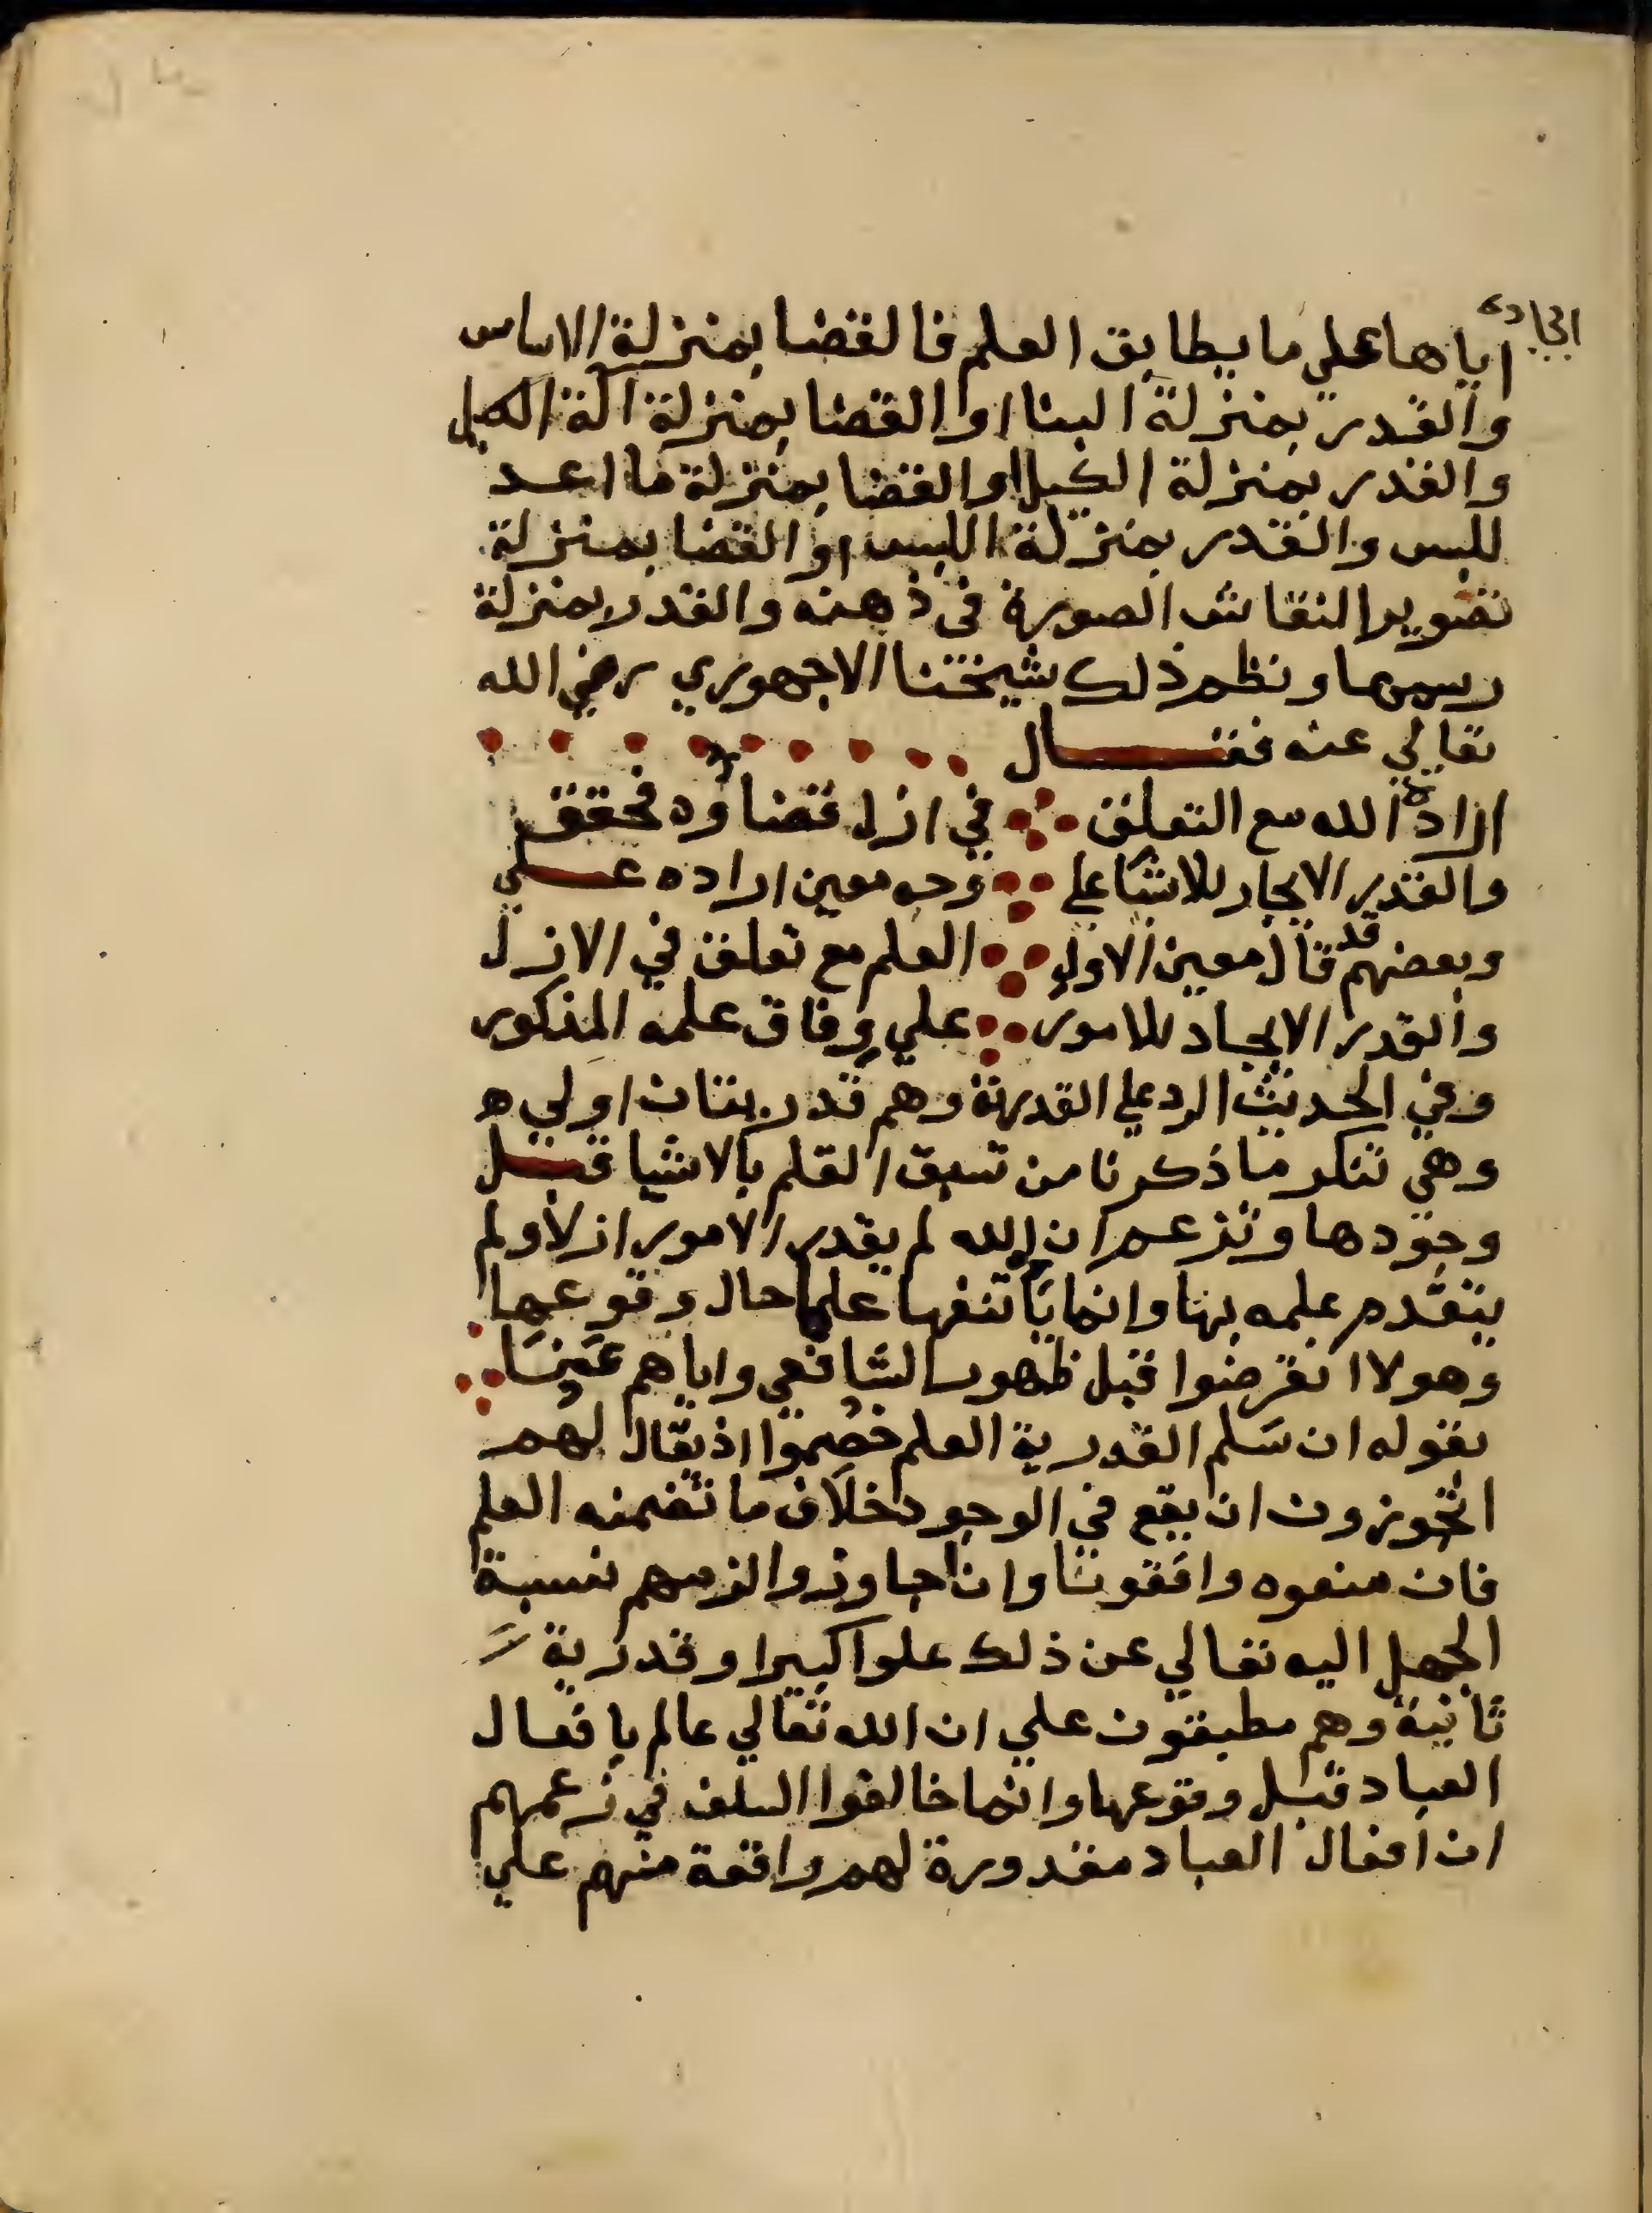 ايجاده
اياها علي ما يطابق العلم فالقضا بمنزلة الاساس
والقدر بمنزلة البنا او القضا بمنزلة الة الكيل
والقدر بمنزلة الكيل او القضا بمنزلة ما اعد
للبس والقدر بمنزلة اللبس او القضا بمنزلة
تصوير النقاش الصورة في ذهنه والقدر بمنزلة
رسمها ونظم ذلك شيخنا الاجهوري رضي الله
تعالي عنه فقال
ارادة الله مع التعلق في ازل قضاؤه فحقق
والقدر الايجاد للاشيا علي وجه معين اراده علي
وبعضهم قد قال معين الاول العلم مع تعلق في الازل
والقدر الايجاد للامور علي وفاق علمه المذكور
وفي الحديث الرد علي القدرية وهم قدريتان اولي ه
وهي تنكر ما ذكرنا من سبق القلم بالاشيا قبل
وجودها وتزعم ان الله لم يقدر الامور ازلا ولم
يتقدم علمه بها وانما ياتنفها علما حال وقوعها
وهولا انقرضوا قبل ظهور الشافعي واياهم عني
بقوله ان سلم القدرية العلم خصموا اذ يقال لهم
اتجوزون ان يقع في الوجود خلاف ما تضمنه العلم
فان منعوه وافقونا وان جاوزوا لزمهم نسبة
الجهل اليه تعالي عن ذلك علوا كبيرا وقدرية
ثانية وهم مطبقون علي ان الله تعالي عالم بافعال
العباد قبل وقوعها وانما خالفوا السلف في زعمهم
ان افعال العباد مقدورة لهم واقعة منهم علي